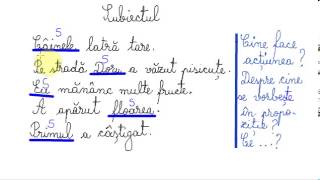 Subiectul
S
Câinele latră tare.
S
Pe stradă Doru a văzut pisicuțe.
S
mănânc multe fructe.
S
A apărut floarea.
S
Primul a câștigat.
Cine face
acțiunea?
Despre cine
se vorbește
în propo-
ziție?
Ce ...?